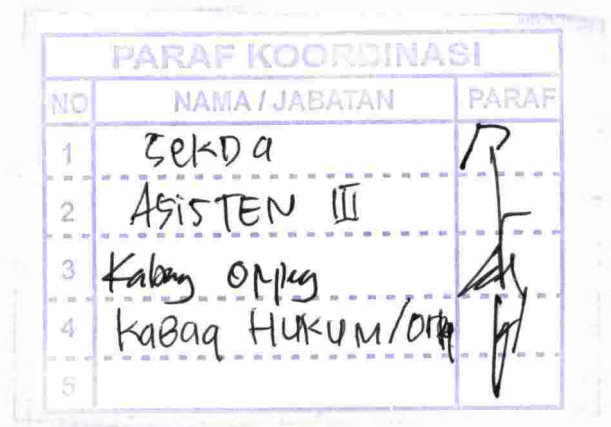 PARAF KOORDINASI
NO NAMA / JABATAN PARAF
1 SekDa
2 ASisTEN III
3 Kabag
4 KaBag HUKUM/
5